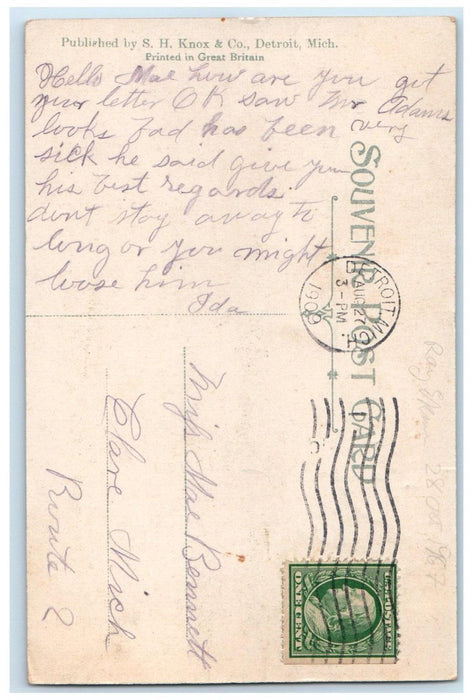 Published by S. H. Knox & Co., Detroit, Mich.
Printed in Great Britain
Hello Mae how are you got
your letter OK saw Mr Adams
looks bad has been very
sick he said give you
his best regards.
dont stay away to
long or you might
loose him
Ida
SOUVENIR POST CARD
DETROIT, MICH.
AUG 27
3-PM
1909
Miss Mae Bennett
Clare Mich
Route 2
28 Oct 1987
U.S. POSTAGE
ONE CENT